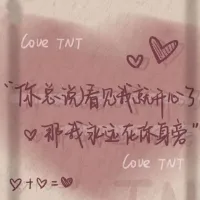 Love TNT
“你总说看见我就开心了
那我永远在你身旁”
Love TNT
+ =